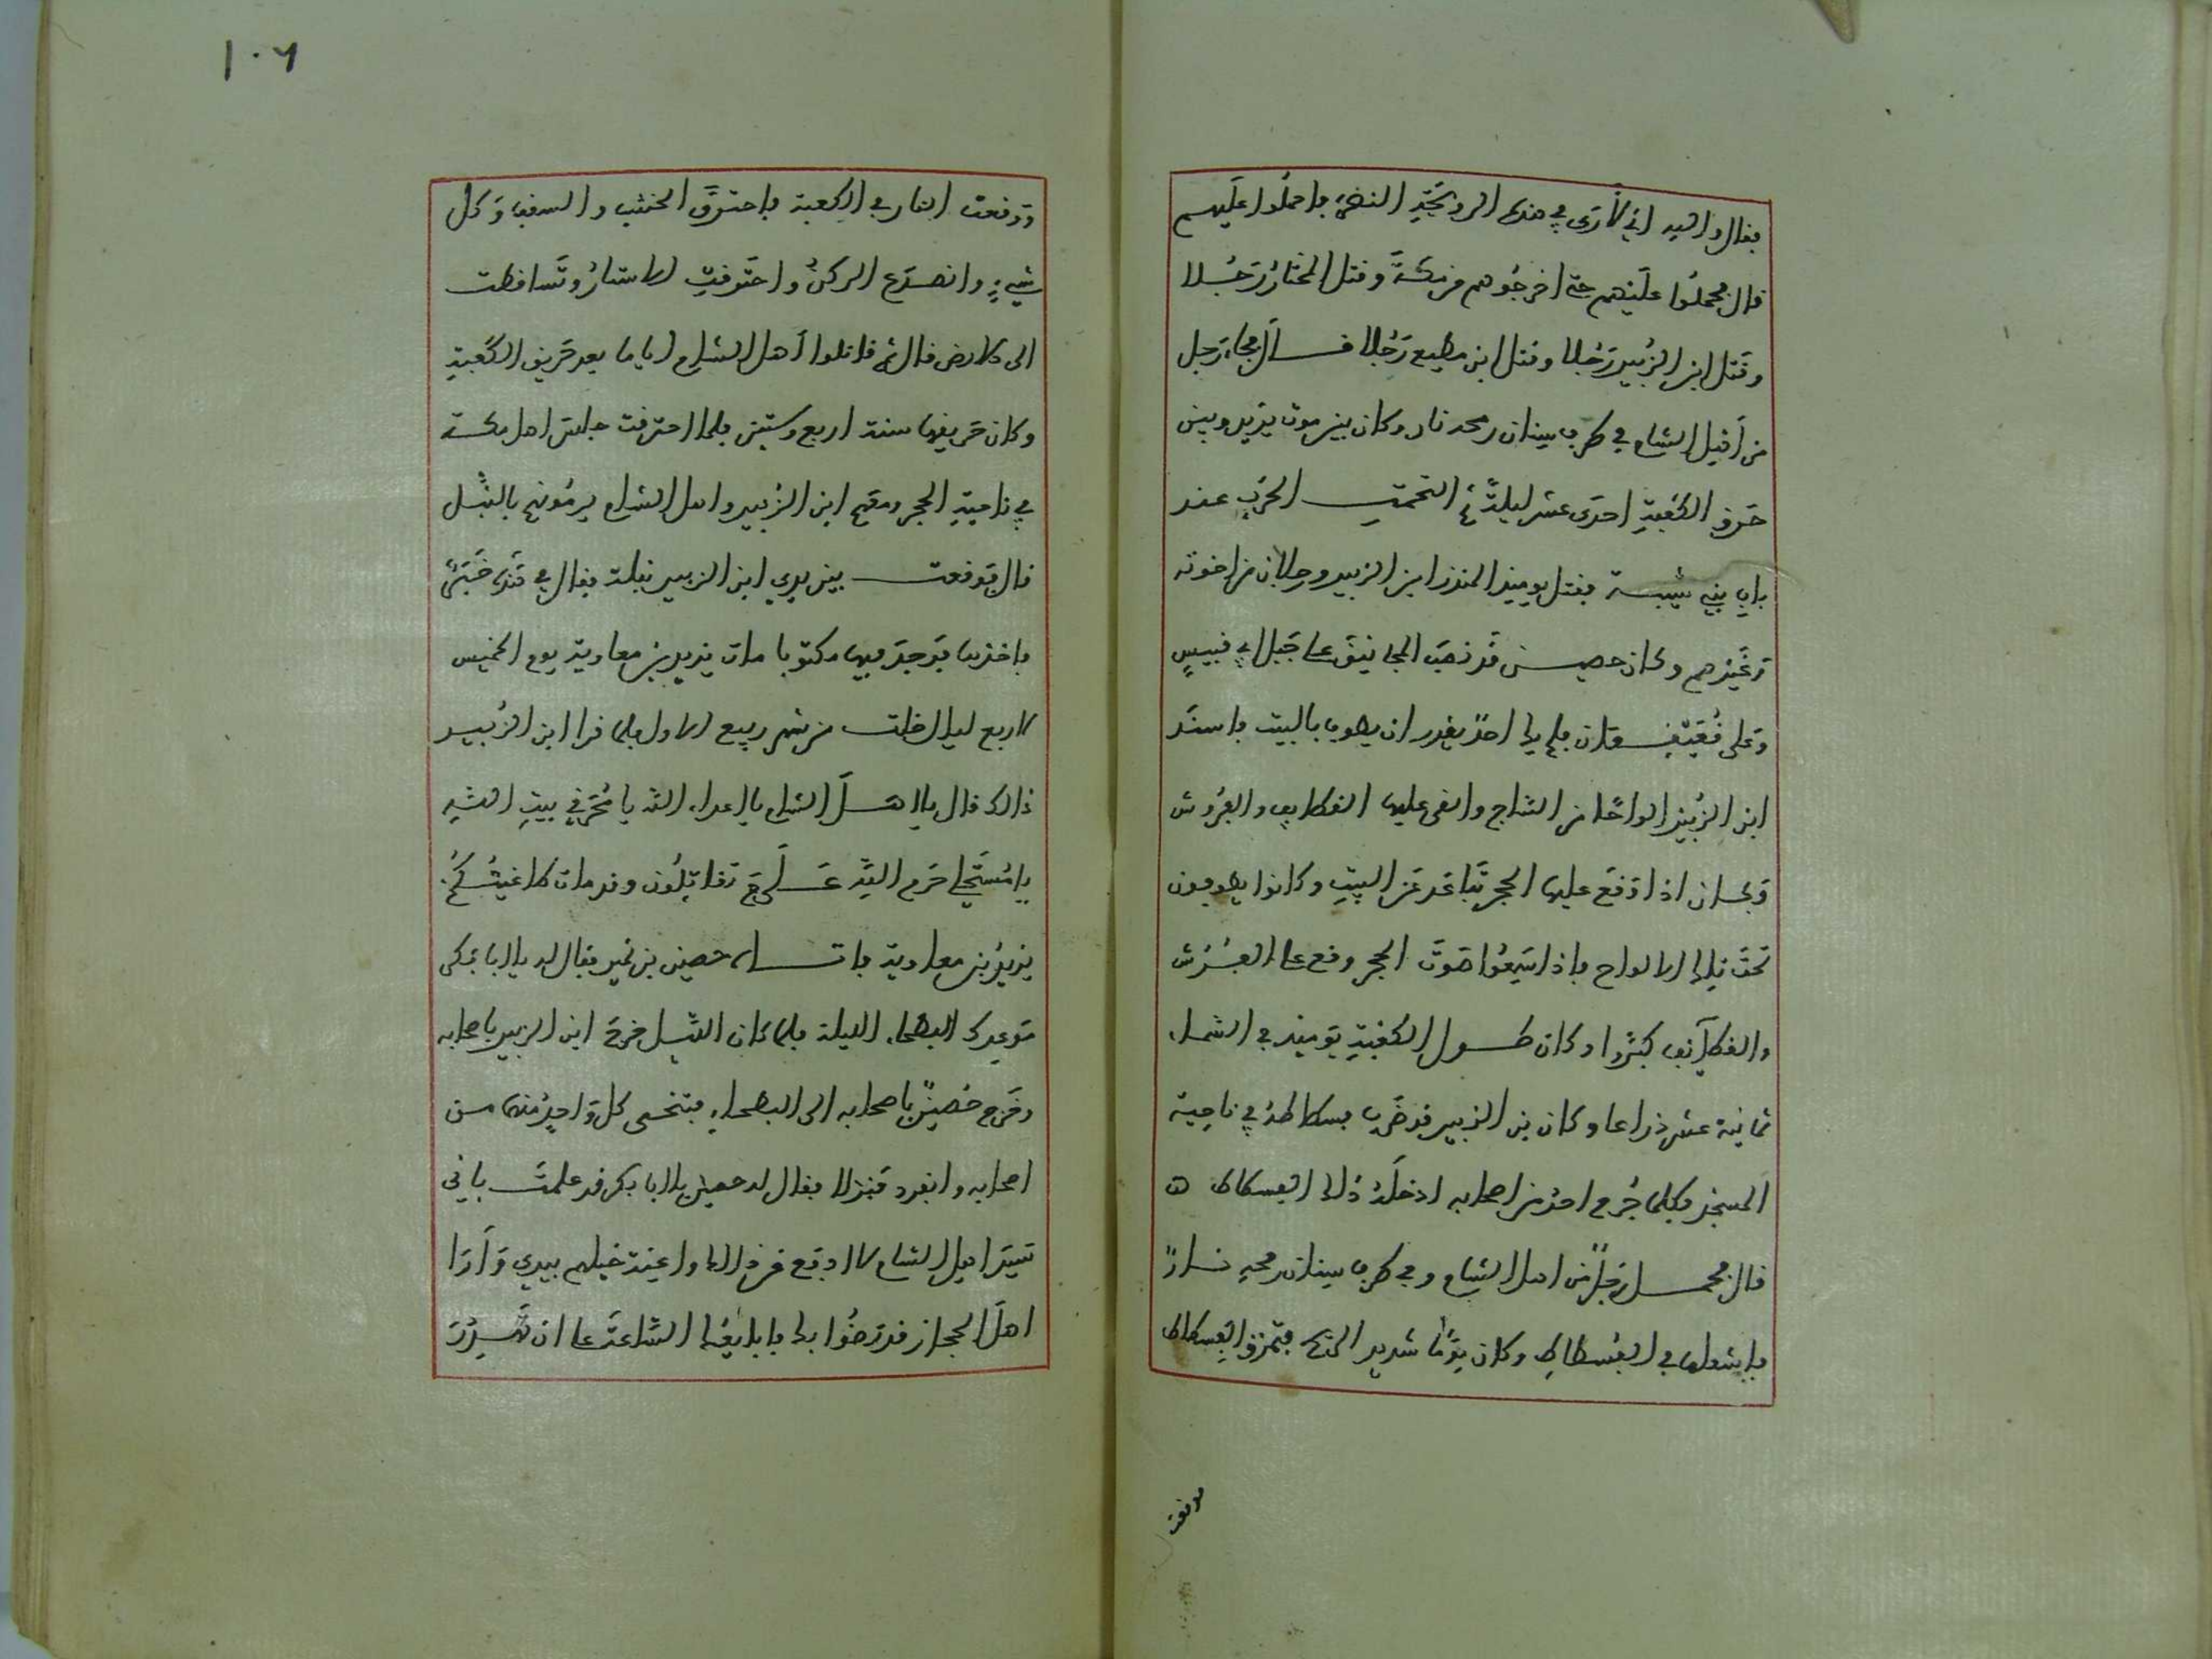 فقال والله اني لأرى في هذه الروحة النصر فاحملوا عليهم
قال فحملوا عليهم حتى اخرجوهم من مكة وقتل المختار رجلا
وقتل ابن الزبير رجلا وقتل ابن مطيع رجلا قال فجاء رجل
من اهل الشام في طرف سنان رمحه نار وكان بين موت يزيد وبين
حرق الكعبة احدى عشر ليلة ثم التحمت الحرب عند
باب بني شيبة فقتل يوميذ المنذر ابن الزبير ورجلان من اخوته
وغيرهم وكان حصين قد نصب المجانيق على جبل ابي قبيس
وعلى قعيقعان فلم يك احد يقدر ان يطوف بالبيت فاسند
ابن الزبير الواحا من الساج والقى عليها القطايف والفرش
فكان اذا وقع عليها الحجر تباعد عن البيت وكانوا يطوفون
تحت تلك الالواح فاذا سمعوا صوت الحجر وقع على الفرش
والقطايف كبروا وكان طول الكعبة يوميذ في السماء
ثمانية عشر ذراعا وكان بن الزبير قد ضرب فسطاطه في ناحية
المسجد فكلما جرح احد من اصحابه ادخله ذلك الفسطاط
قال فحمل رجل من اهل الشام وفي طرف سنان رمحه نار
فاشعلها في الفسطاط وكان يوما شديد الحر فتمزق الفسطاط
فوقعت
ووقعت النار في الكعبة فاحترق الخشب والسقف وكل
شيء وانصدع الركن واحترقت الاستار وتساقطت
الى الارض قال ثم قاتلوا أهل الشام اياما بعد حريق الكعبة
وكان حريقها سنة اربع وستين فلما احترقت جلس اهل مكة
في ناحية الحجر ومعهم ابن الزبير واهل الشام يرمونهم بالنبل
قال فوقعت بين يدي ابن الزبير نبلة فقال في هذه خبر
فاخذها فوجد فيها مكتوبا مات يزيد بن معاوية يوم الخميس
لاربع ليال خلت من شهر ربيع الاول فلما قرا ابن الزبير
ذالك قال يا اهل الشام يا اعداء الله يا محرقي بيت الله
يا مستحلي حرم الله علام تقاتلون وقد مات طاغيتكم
يزيد بن معاوية فاتاه حصين بن نمير فقال له يا ابا بكر
موعدك البطحاء الليلة فلما كان الليل خرج ابن الزبير باصحابه
وخرج حصين باصحابه الى البطحاء فتنحى كل واحد منهما من
اصحابه وانفرد فنزلا فقال له حصين يا ابا بكر قد علمت باني
سيد اهل الشام لا ادفع عن ذالك واعنة خيلهم بيدي وأرا
اهل الحجاز قد رضوا بك فابايعك الساعة على ان تهدر
١٠٦